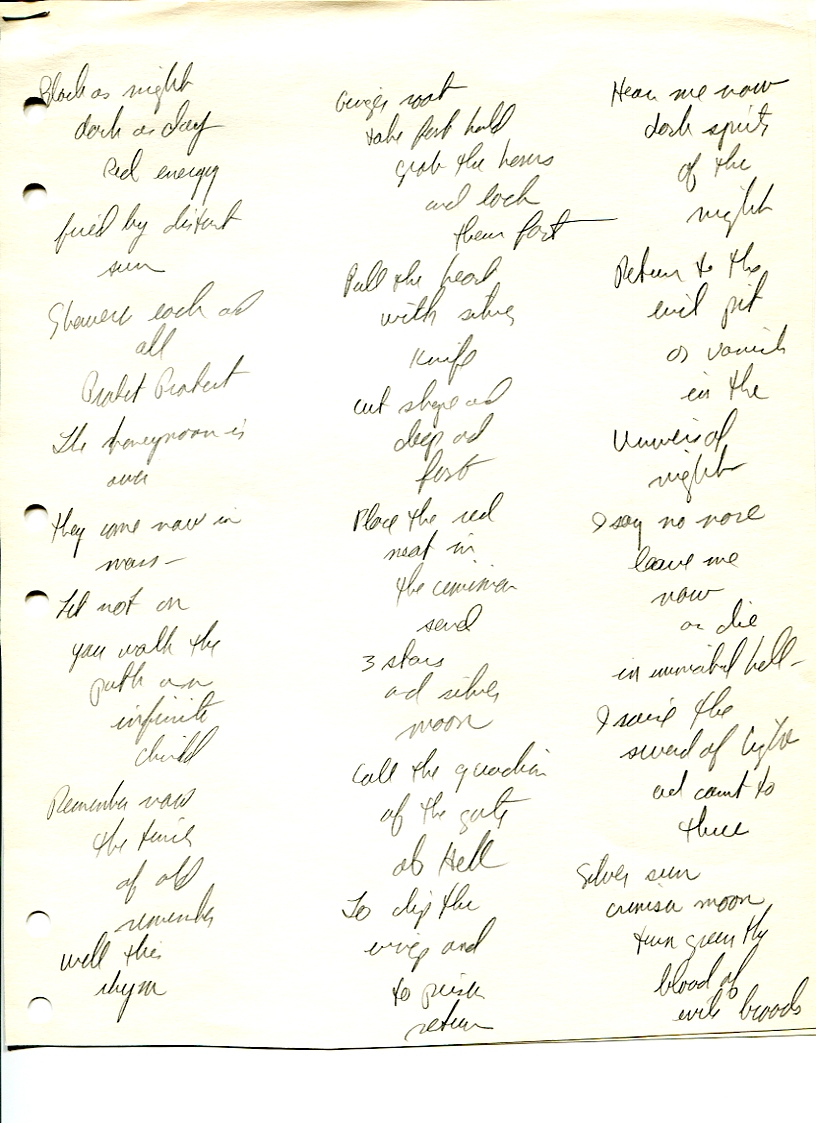 Black as night
dark as day
Red energy
fired by distant
sun
each ad
all
Protect Protect
The honeymoon is
over
they come now in
mass—
not on
you walk the
path
infinite
child
Remember now
the times
of old
remember
well this
rhym
Ginger root
take fast hold
grab the horns
and lock
them fast
Pull the heart
with silver
knife
cut shape ad
deep ad
fast
Place the red
meat in
the crimson
send
3 stars
ad silver
moon
Call the guardian
of the gate
ob Hell
To clip the
wing and
to prism
return
Hear me now
dark spirits
of the
night
Return to the
evil pit
or vanish
in the
Universal
night
I say no more
leave me
now
or die
in hell—
I the
sword of light
ad count to
three
Silver sun
crimson moon
turn green thy
blood of
evils broods